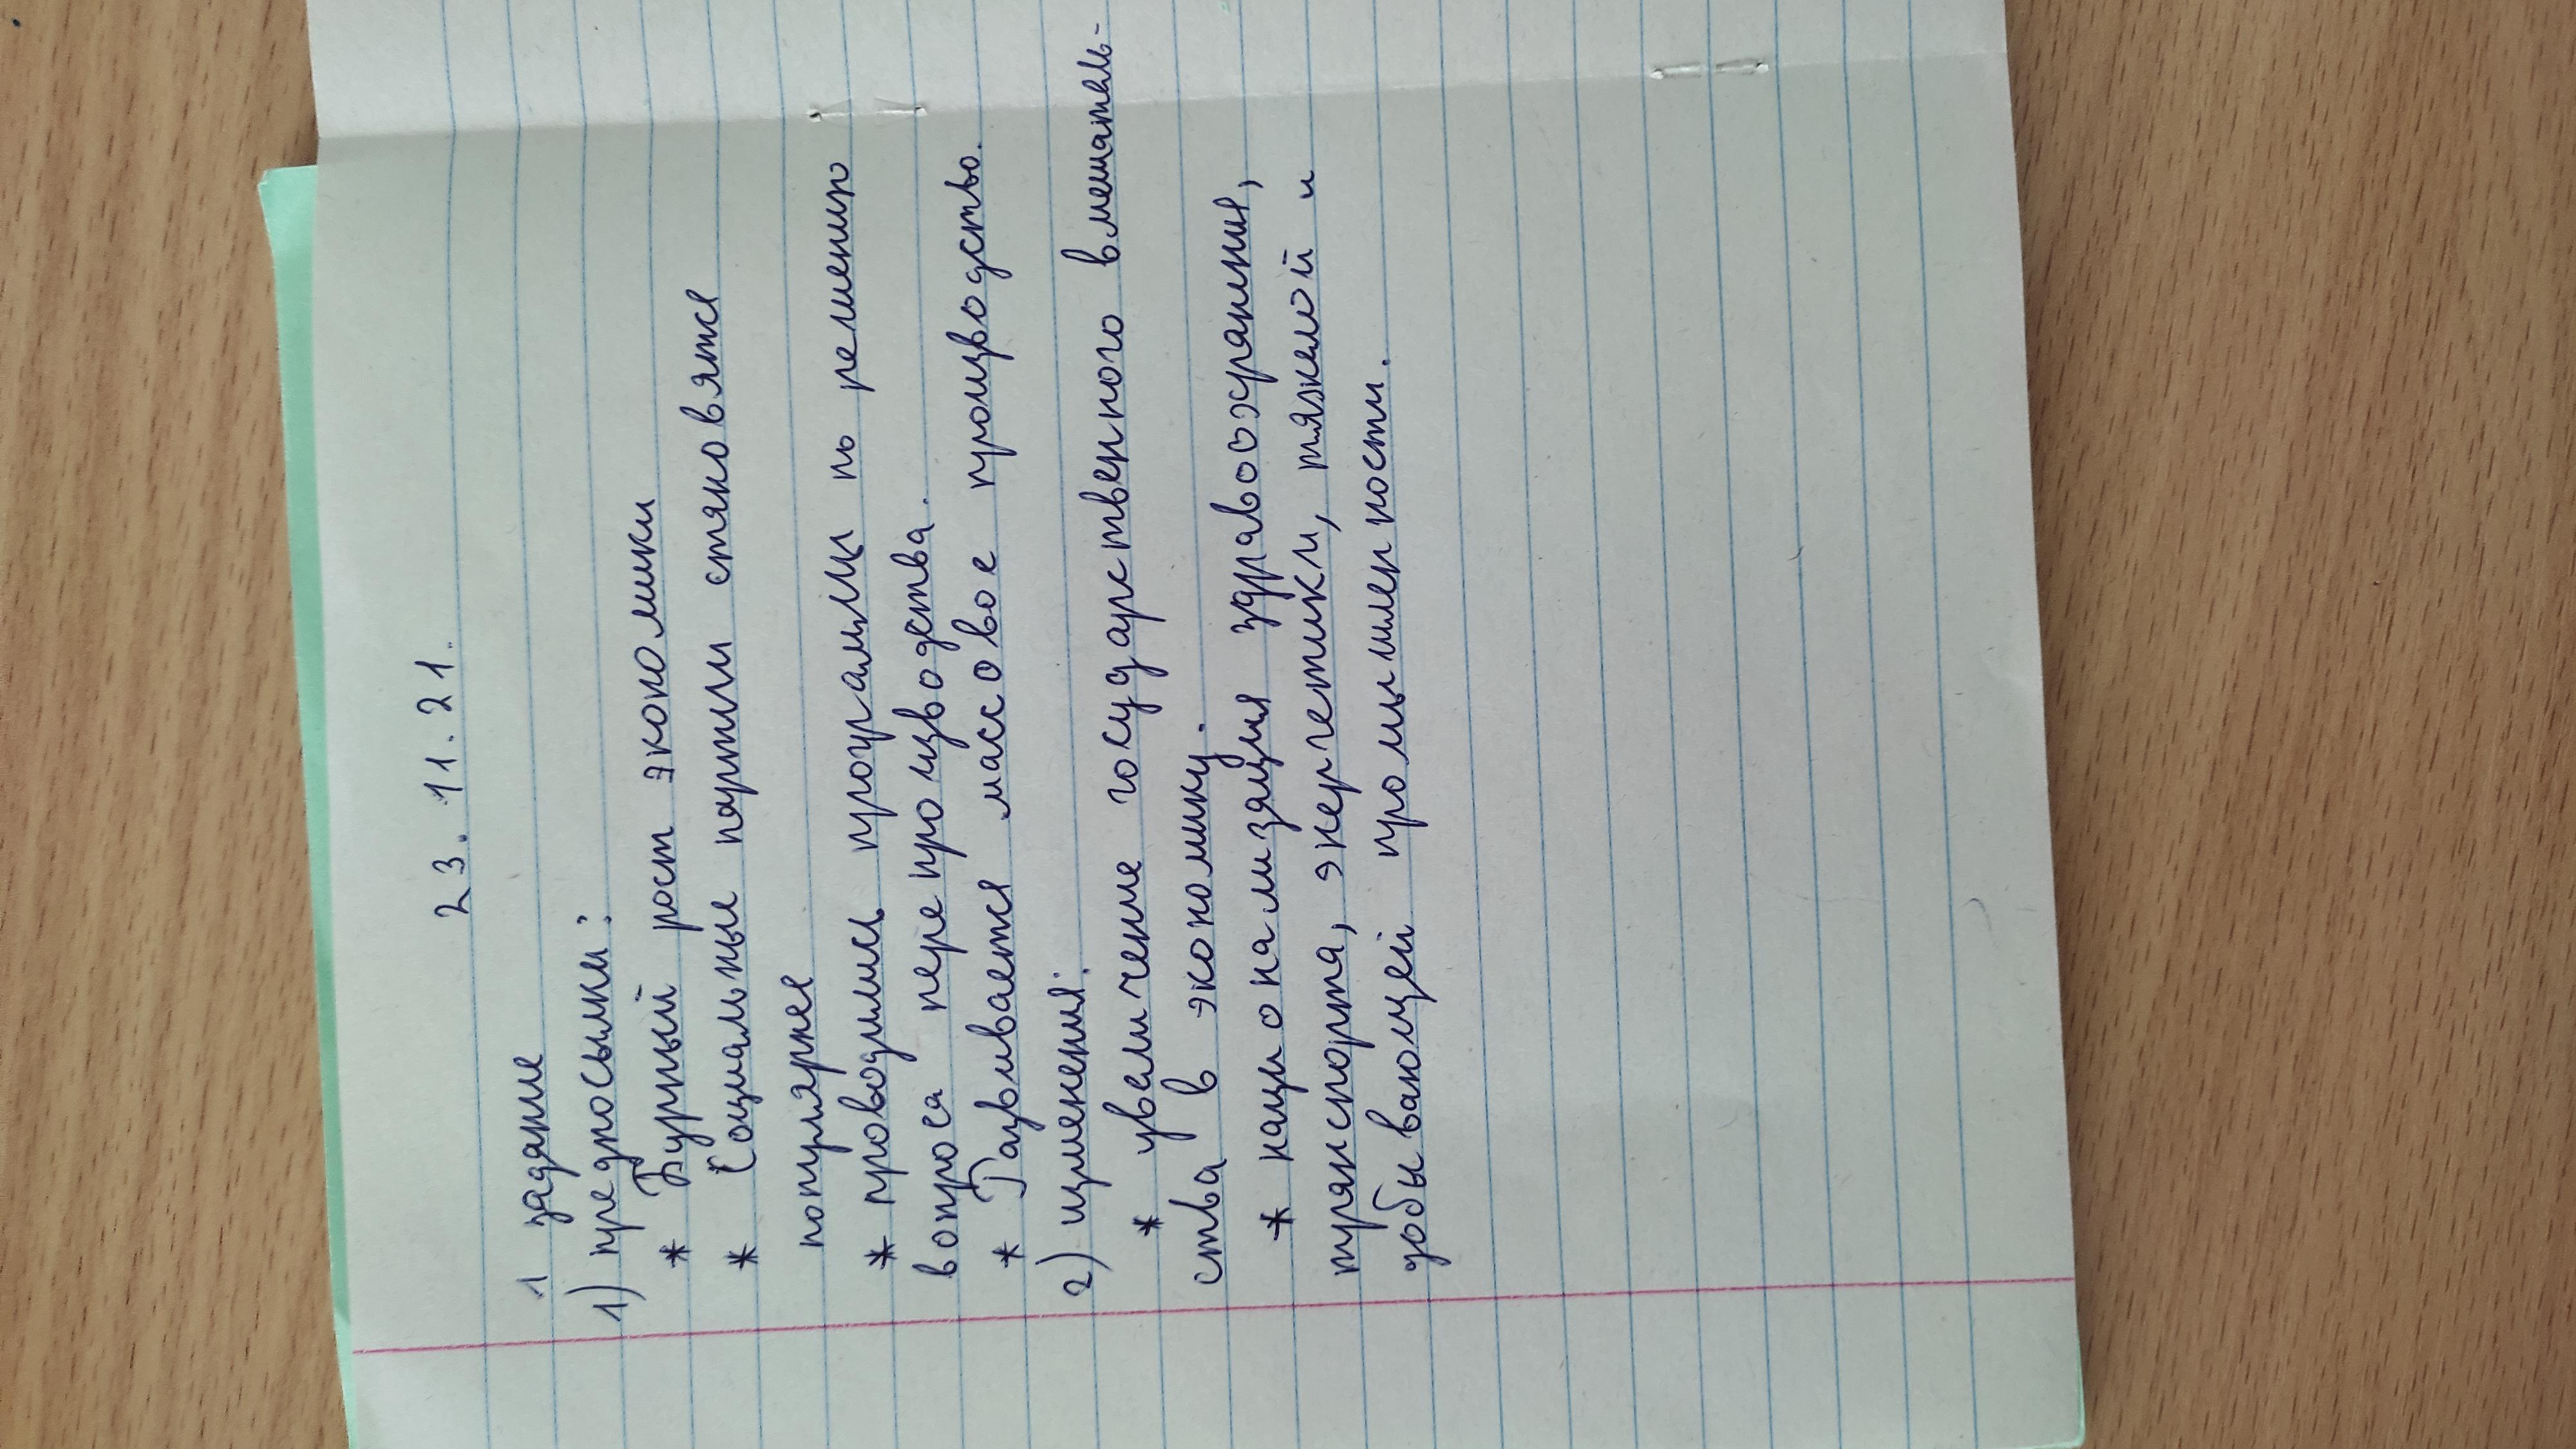 23.11.21.
1 задание
1) предпосылки:
* Бурный рост экономики
* Социальные партии становятся
популярнее
* проводились программы по решению
вопроса перепроизводства.
* Развивается массовое производство.
2) изменения:
* увеличение государственного вмешатель-
ства в экономику.
* национализация здравоохранения,
транспорта, энергетики, тяжелой и
добывающей промышленности.